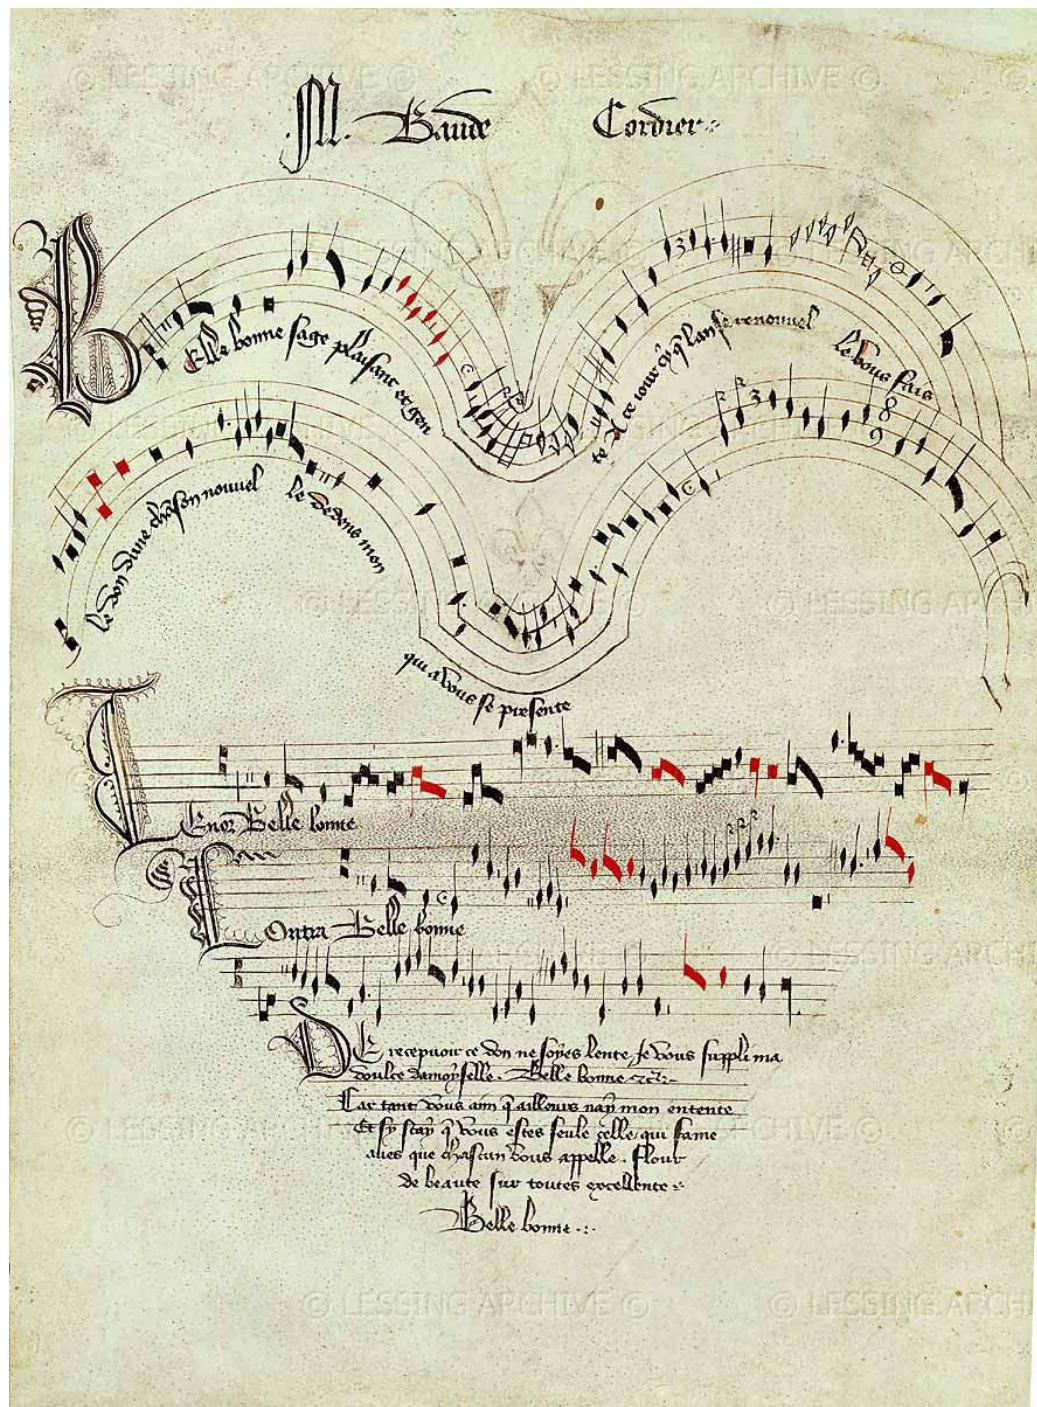 © LESSING ARCHIVE © © LESSING ARCHIVE ©
.M. Baude Cordier
Elle bonne sage plaisant et gen
te A ce iour cy q̃ lan se renouuel
le vous fais
le don dune chãson nouuel
le dedens mon
qui a vous se presente
Enor Belle bonne
Ontra Belle bonne
DE recepuoir ce don ne soyes lente Je vous suppli ma
doulce damoyselle. Belle bonne
Car tant vous aim q̃ ailleurs nay mon entente
Et sy scay q̃ vous estes seule celle qui fame
aues que chascun vous appelle. Flour
de beaute sur toutes excellente
Belle bonne
© LESSING ARCHIVE ©